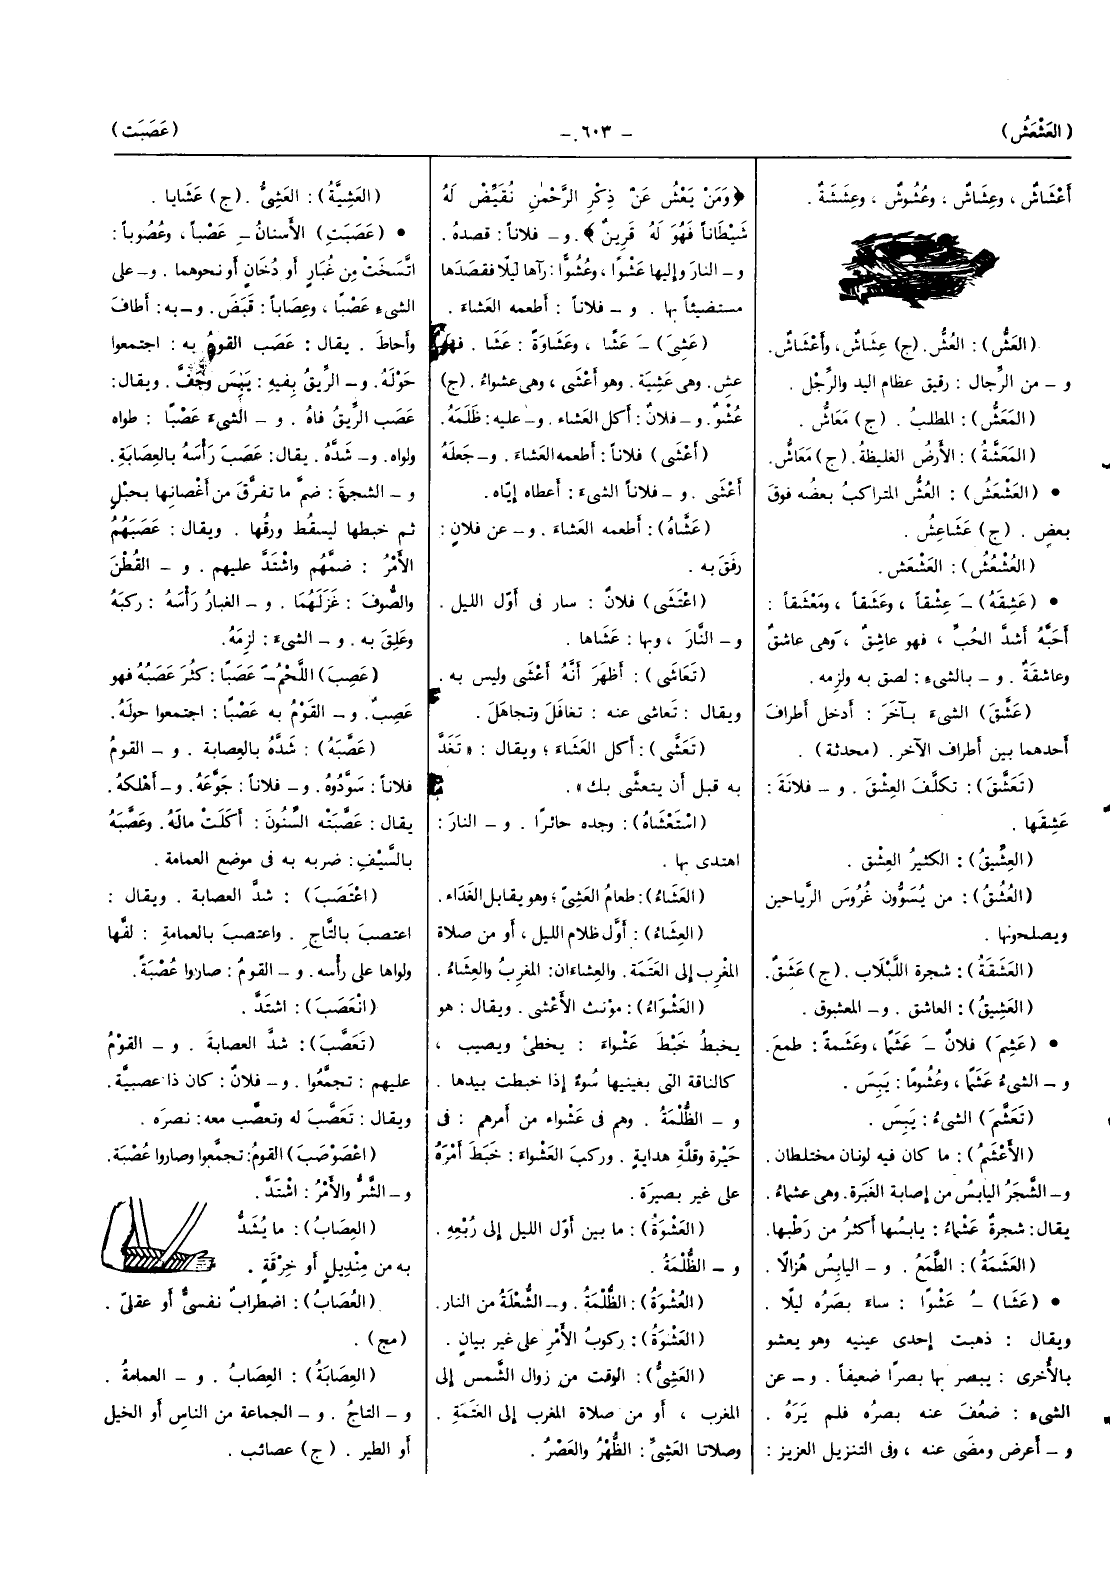 (العَشْعَشُ)
– ٦٠٣ –
(عَصَبَت)
أَعْشَاشٌ ، وعِشَاشٌ ، وعُشُوشٌ ، وعِشَشَةٌ .
(العَشُّ) : العُشُّ. (ج) عِشَاشٌ، وأَعْشَاشٌ.
و – من الرِّجال : رقيق عظام اليد والرِّجْل .
(المَعَشُّ) : المطلبُ . (ج) مَعَاشُّ .
(المَعَشَّةُ) : الأَرضُ الغليظةُ. (ج) مَعَاشُّ.
• (العَشْعَشُ) : العُشُّ المتراكبُ بعضُه فوقَ
بعضٍ . (ج) عَشَاعِشُ .
(العُشْعُشُ) : العَشْعَش .
• (عَشِقَهُ) –َ عِشْقاً ، وعَشَقاً ، ومَعْشَقاً :
أَحَبَّهُ أَشدَّ الحُبِّ ، فهو عاشِقٌ ، وهى عاشقٌ
وعاشقَةٌ . و – بالشىءِ : لصق به ولزمه .
(عَشَّقَ) الشىءَ بـآخَرَ : أَدخل أَطرافَ
أَحدهما بين أَطراف الآخر. (محدثة) .
(تَعَشَّقَ) : تكلَّفَ العِشْقَ . و – فلانَةَ :
عَشِقَها .
(العِشِّيقُ) : الكثيرُ العِشْقِ .
(العُشُقُ) : من يُسَوُّون غُرُوسَ الرَّياحين
ويصلحونها .
(العَشَقَةُ) : شجرة اللَّبْلَاب . (ج) عَشَقٌ.
(العَشِيقُ) : العاشق . و – المعشوق .
• (عَشِمَ) فلانٌ –َ عَشَمًا ، وعَشَمةً : طمعَ.
و – الشىءُ عَشَمًا ، وعُشُومًا : يَبِسَ .
(تَعَشَّمَ) الشىءُ : يَبِسَ .
(الأَعْشَمُ) : ما كان فيه لونان مختلطان .
و– الشَّجَرُ اليابسُ من إصابة الغَبَرة. وهى عشماءُ.
يقال: شجرةٌ عَشْماءُ : يابسُها أكثرُ من رَطْبها.
(العَشَمَةُ) : الطَّمَعُ . و – اليابِسُ هُزالًا .
• (عَشَا) –ُ عَشْوًا : ساءَ بصَرُه ليلًا .
ويقال : ذهبت إحدى عينيه وهو يعشو
بالأُخرى : يبصر بها بصرًا ضعيفاً . و – عن
الشىءِ : ضعُفَ عنه بصرُه فلم يَرَهُ .
و – أَعرض ومضَى عنه ، وفى التنزيل العزيز :
﴿وَمَنْ يَعْشُ عَنْ ذِكْرِ الرَّحْمٰنِ نُقَيِّضْ لَهُ
شَيْطَاناً فَهُوَ لَهُ قَرِينٌ﴾ . و – فلاناً : قصدهُ .
و – النارَ وإليها عَشْوًا ، وعُشُوًّا : رآها ليلًا فقصَدَها
مستضيئاً بها . و – فلاناً : أَطعمه العَشاءَ .
(عَشِىَ) –َ عَشًا ، وعَشَاوَةً : عَشَا . فهو
عشٍ. وهى عَشِيَة. وهو أَعْشَى ، وهى عشواءُ. (ج)
عُشْوٌ. و – فلانٌ : أَكل العَشاءَ . و – عليه : ظَلَمَهُ.
(أَعْشَى) فلاناً : أَطعمه العَشاءَ . و – جَعلَهُ
أَعْشَى . و – فلاناً الشىءَ : أَعطاه إيّاه .
(عَشَّاهُ) : أَطعمه العَشاءَ . و – عن فلانٍ :
رفَقَ به .
(اعْتَشَى) فلانٌ : سار فى أَوّل الليل .
و – النَّارَ ، وبها : عَشَاها .
(تَعَاشَى) : أَظهَرَ أَنَّهُ أَعْشَى وليس به .
ويقال : تعاشى عنه : تغافلَ وتجاهَلَ .
(تَعَشَّى) : أَكل العَشَاءَ ؛ ويقال : « تَغَدَّ
به قبل أن يتعشَّى بك » .
(اسْتَعْشَاهُ) : وجده حائرًا . و – النارَ :
اهتدى بها .
(العَشَاءُ) : طعامُ العَشِىِّ ؛ وهو يقابل الغَدَاء .
(العِشَاءُ) : أَوَّل ظلام الليل ، أَو من صلاة
المَغْرب إلى العَتَمَة. والعِشاءان: المغربُ والعِشاءُ.
(العَشْوَاءُ) : مؤنث الأَعْشى. ويقال : هو
يخبطُ خَبْطَ عَشْواءَ : يخطئ ويصيب ،
كالناقة التى بعَينيها سُوءٌ إذا خبطت بيدها .
و – الظُّلْمَةُ . وهم فى عَشْواء من أمرهم : فى
حَيْرة وقلَّةِ هداية . وركبَ العَشْواءَ : خَبَطَ أَمْرَهُ
على غير بصيرَة .
(العَشْوَةُ) : ما بين أَوّل الليل إلى رُبْعِهِ .
و – الظُّلْمَةُ .
(العُشْوَةُ) : الظُّلْمَةُ . و – الشُّعْلَةُ من النار.
(العَشْوَةُ) : ركوبُ الأَمْرِ على غير بيانٍ .
(العَشِىُّ) : الوقت من زوال الشَّمس إلى
المغرب ، أَو من صلاة المغرب إلى العَتَمَةِ .
وصلاتا العَشِىِّ : الظُّهْرُ والعَصْرُ .
(العَشِيَّةُ) : العَشِىُّ . (ج) عَشَايا .
• (عَصَبَتِ) الأَسنانُ –ِ عَصْباً ، وعُصُوباً :
اتَّسَخَتْ مِن غُبَارٍ أو دُخَانٍ أو نحوهما . و – على
الشىء عَصْبًا ، وعِصَاباً : قَبَضَ . و – به : أَطافَ
وأَحاطَ . يقال : عَصَب القومُ به : اجتمعوا
حَوْلَهُ. و – الرِّيقُ بِفيهِ : يَبِسَ وجَفَّ. ويقال:
عَصَب الرِّيقُ فاهُ . و – الشىءَ عَصْبًا : طواه
ولواه. و – شَدَّهُ . يقال: عَصَبَ رَأْسَهُ بالعِصَابَةِ.
و – الشجرةَ : ضمَّ ما تفرَّقَ من أَغصانِها بحَبْلٍ
ثم خبطها ليسقُط ورقُها . ويقال : عَصَبَهُمُ
الأَمْرُ : ضمَّهُم واشْتَدَّ عليهم . و – القُطْنَ
والصُّوفَ : غَزَلَهُمَا . و – الغبارُ رَأْسَهُ : ركبَهُ
وعَلِقَ به . و – الشىءَ : لزِمَهُ .
(عَصِبَ) اللَّحْمُ –َ عَصَبًا : كثُرَ عَصَبُهُ فهو
عَصِبٌ. و – القَوْمُ به عَصْبًا : اجتمعوا حولَهُ.
(عَصَّبَهُ) : شدَّهُ بالعِصابة . و – القومُ
فلاناً : سَوَّدُوهُ. و – فلاناً : جَوَّعَهُ. و – أَهْلكهُ.
يقال : عَصَّبَتْه السِّنُونَ : أَكَلَتْ مالَهُ. وعَصَّبَهُ
بالسَّيْفِ : ضربه به فى موضع العمامة .
(اعْتَصَبَ) : شدَّ العصابة . ويقال :
اعتصبَ بالتَّاجِ . واعتصبَ بالعمامةِ : لفَّها
ولواها على رأْسه. و – القومُ : صاروا عُصْبَةً.
(انْعَصَبَ) : اشتَدَّ .
(تَعَصَّبَ) : شدَّ العصابةَ . و – القَوْمُ
عليهم : تجمَّعُوا . و – فلانٌ : كان ذا عصبيَّة.
ويقال : تَعَصَّبَ له وتعصَّبَ معه : نصرَه .
(اعْصَوْصَبَ) القومُ: تجمَّعوا وصاروا عُصْبَة.
و – الشَّرُّ والأَمْرُ : اشْتَدَّ .
(العِصَابُ) : ما يُشَدُّ
به من مِنْدِيلٍ أَو خِرْقَةٍ .
(العُصَابُ) : اضطرابٌ نفسىٌّ أَو عقلىّ .
(مج) .
(العِصَابَةُ) : العِصَابُ . و – العمامةُ .
و – التاجُ . و – الجماعة من الناسِ أَو الخيل
أَو الطير . (ج) عصائب .